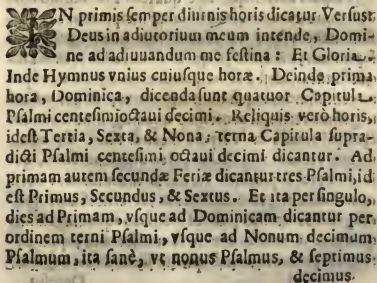 IN primis semper diurnis horis dicatur Versus:
Deus in adiutorium meum intende, Domi-
ne ad adiuuandum me festina: Et Gloria.
Inde Hymnus vnius cuiusque horæ. Deinde prima
hora, Dominica, dicenda sunt quatuor Capitula
Psalmi centesimioctaui decimi. Reliquis verò horis,
idest Tertia, Sexta, & Nona; terna Capitula supra-
dicti Psalmi centesimi octaui decimi dicantur. Ad
primam autem secundæ Feriæ dicantur tres Psalmi, id
est Primus, Secundus, & Sextus. Et ita per singulos,
dies ad Primam, vsque ad Dominicam dicantur per
ordinem terni Psalmi, vsque ad Nonum decimum
Psalmum, ita sanè, vt nonus Psalmus, & septimus
decimus